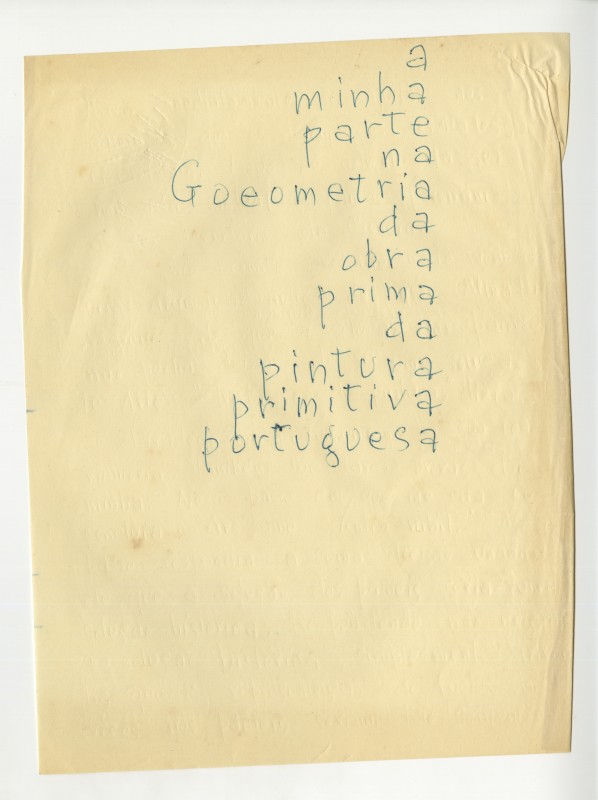 a
minha
parte
na
Goeometria
da
obra
prima
da
pintura
primitiva
portuguesa